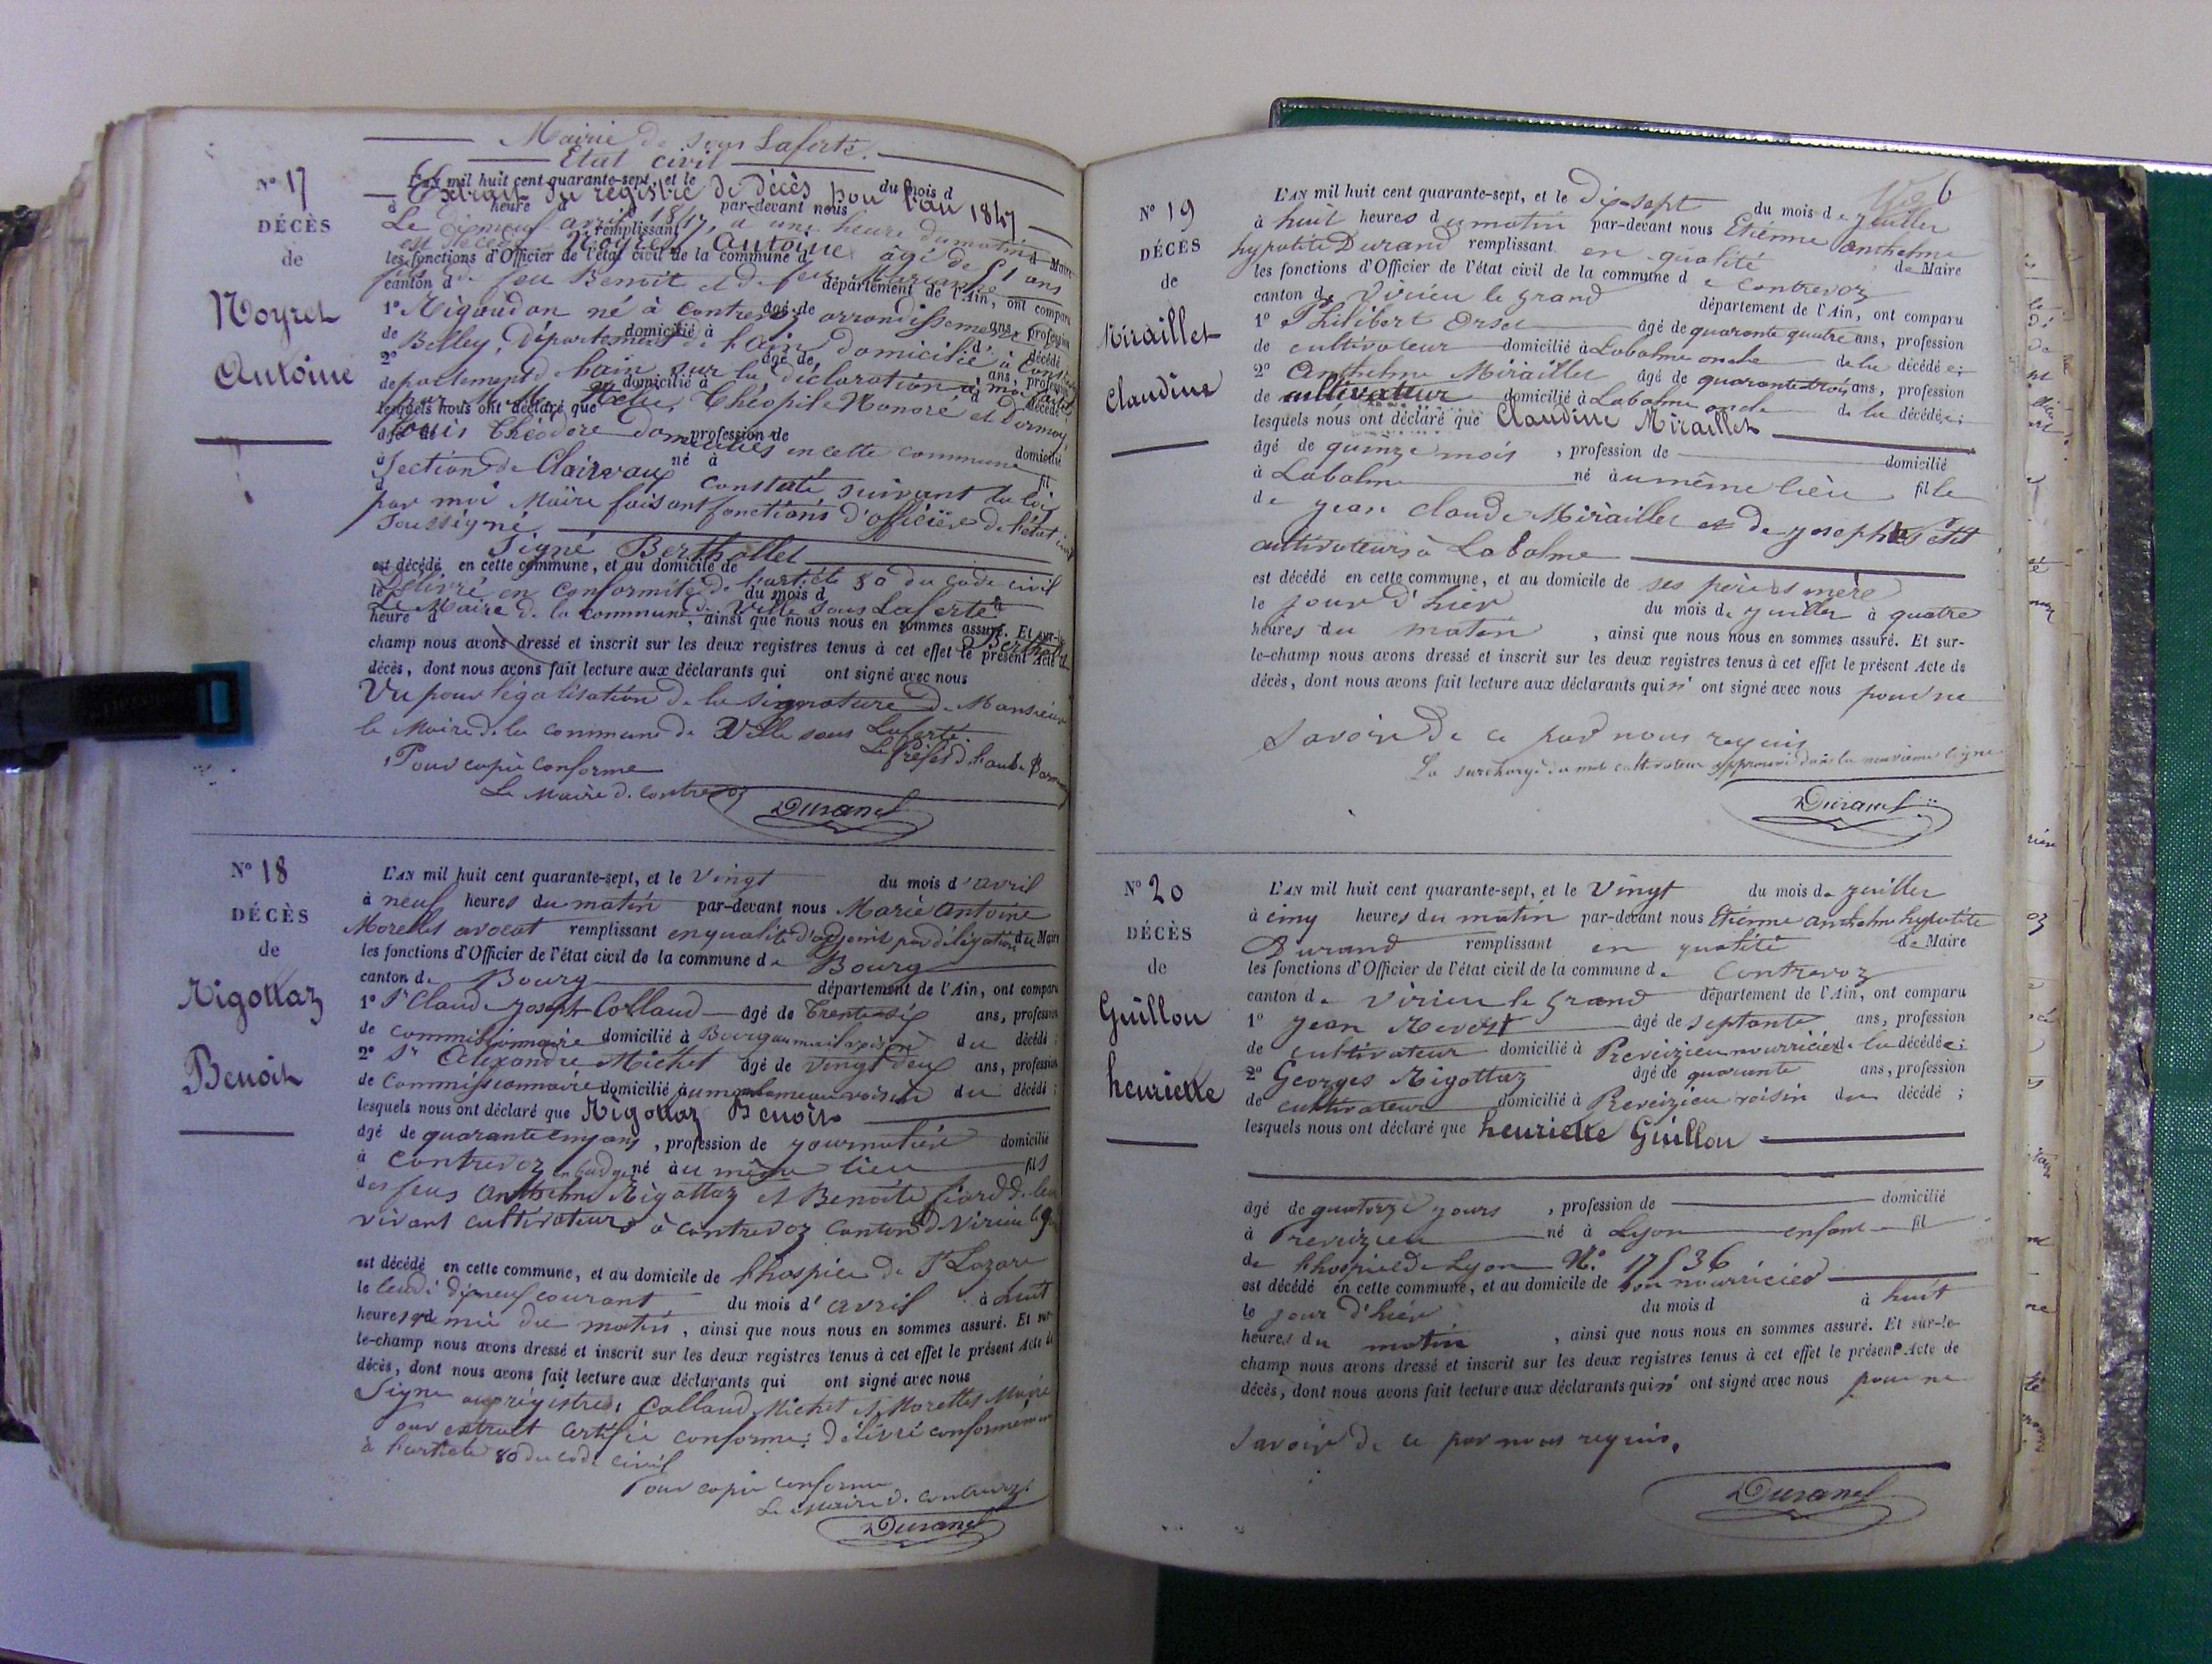 Mairie de sous Laferté.
Etat civil
Nº 17
DÉCÈS
de
Noyret
Antoine
L'AN mil huit cent quarante-sept, et le du mois d
Extrait du registre de décès pour l'an 1847
heure d par-devant nous
Le dixneuf avril 1847, à une heure du matin
remplissant
est décédé Noyret Antoine âgé de 51 ans
les fonctions d'Officier de l'état civil de la commune d
fils de feu Benoit et de feue Marianne
canton d département de l'Ain, ont comparu
1º Rigaudon né à Contrevoz arrondissement
de Belley, Département de l'ain domicilié à
département de l'ain sur la déclaration à moi faite
par Théopile Honoré et Dormoy
lesquels nous ont déclaré que
Louis Théodore domiciliés en cette commune
profession de
section de Clairvaux constaté suivant la loi
par moi Maire faisant fonctions d'officier de l'état civil
soussigné
Signé Berthollet
est décédé en cette commune, et au domicile de
Délivré en conformité de l'article 80 du code civil
Le Maire de la commune de Ville sous Laferté
heure d , ainsi que nous nous en sommes assuré. Et sur-le-
champ nous avons dressé et inscrit sur les deux registres tenus à cet effet le présent Acte
décès, dont nous avons fait lecture aux déclarants qui ont signé avec nous
Vu pour légalisation de la signature de Monsieur
le Maire de la commune de Ville sous Laferté.
Le Préfet de l'aube
Pour copie conforme
Le Maire de Contrevoz
Durand
Nº 18
DÉCÈS
de
Rigottaz
Benoit
L'AN mil huit cent quarante-sept, et le vingt du mois d'avril
à neuf heures du matin par-devant nous Marie antoine
Morellet avocat remplissant en qualité d'adjoint par délégation du Maire
les fonctions d'Officier de l'état civil de la commune de Bourg
canton de Bourg département de l'Ain, ont comparu
1º Sr Claude Joseph Collaud âgé de trente six ans, profession
de commissionnaire domicilié à Bourg du décédé ;
2º Sr Alexandre Michet âgé de vingt deux ans, profession
de commissionnaire domicilié au même hameau voisin du décédé ;
lesquels nous ont déclaré que Rigottaz Benoit
âgé de quarante cinq ans , profession de journalier domicilié
à Contrevoz né au même lieu fils
des feus Anthelme Rigottaz et Benoite de leur
vivant cultivateurs à Contrevoz canton de Virieu le g
est décédé en cette commune, et au domicile de l'hospice de St Lazare
le lundi dixneuf courant du mois d'avril à huit
heures et demie du matin , ainsi que nous nous en sommes assuré. Et sur-
le-champ nous avons dressé et inscrit sur les deux registres tenus à cet effet le présent Acte de
décès, dont nous avons fait lecture aux déclarants qui ont signé avec nous
Signé aux registres, Collaud, Michet et Morellet Maire
Pour extrait certifié conforme: délivré conformément
à l'article 80 du code civil
Pour copie conforme
Le Maire de Contrevoz.
Durand
6
Nº 19
DÉCÈS
de
Miraillet
Claudine
L'AN mil huit cent quarante-sept, et le Dix-sept du mois de juillet
à huit heures du matin par-devant nous Etienne anthelme
hypolite Durand remplissant en qualité de Maire
les fonctions d'Officier de l'état civil de la commune de Contrevoz
canton de Virieu le grand département de l'Ain, ont comparu
1º Philibert Orset âgé de quarante quatre ans, profession
de cultivateur domicilié à Labalme oncle de la décédée;
2º Anthelme Miraillet âgé de quarante trois ans, profession
de cultivateur domicilié à Labalme oncle de la décédée;
lesquels nous ont déclaré que Claudine Miraillet
âgé de quinze mois , profession de domicilié
à Labalme né au même lieu fille
de jean claude Miraillet et de josephte Petit
cultivateurs à Labalme
est décédé en cette commune, et au domicile de ses père et mère
le jour d'hier du mois de juillet à quatre
heures du matin , ainsi que nous nous en sommes assuré. Et sur-
le-champ nous avons dressé et inscrit sur les deux registres tenus à cet effet le présent Acte de
décès, dont nous avons fait lecture aux déclarants qui n'ont signé avec nous pour ne
savoir de ce par nous requis
La surcharge du mot cultivateur approuvé dans la neuvieme ligne
Durand
Nº 20
DÉCÈS
de
Guillon
henriette
L'AN mil huit cent quarante-sept, et le Vingt du mois de juillet
à cinq heures du matin par-devant nous Etienne anthelme hypolite
Durand remplissant en qualité de Maire
les fonctions d'Officier de l'état civil de la commune de Contrevoz
canton de Virieu le grand département de l'Ain, ont comparu
1º jean âgé de septante ans, profession
de cultivateur domicilié à Preveizieu nourricier de la décédée;
2º Georges Rigottaz âgé de quarante ans, profession
de cultivateur domicilié à Preveizieu voisin du décédé ;
lesquels nous ont déclaré que henriette Guillon
âgé de quatorze jours , profession de domicilié
à Preveizieu né à Lyon enfant fil
de l'hospice de Lyon Nº. 17536
est décédé en cette commune, et au domicile de son nourricier
le jour d'hier du mois d à huit
heures du matin , ainsi que nous nous en sommes assuré. Et sur-le-
champ nous avons dressé et inscrit sur les deux registres tenus à cet effet le présent Acte de
décès, dont nous avons fait lecture aux déclarants qui n'ont signé avec nous pour ne
savoir de ce par nous requis.
Durand